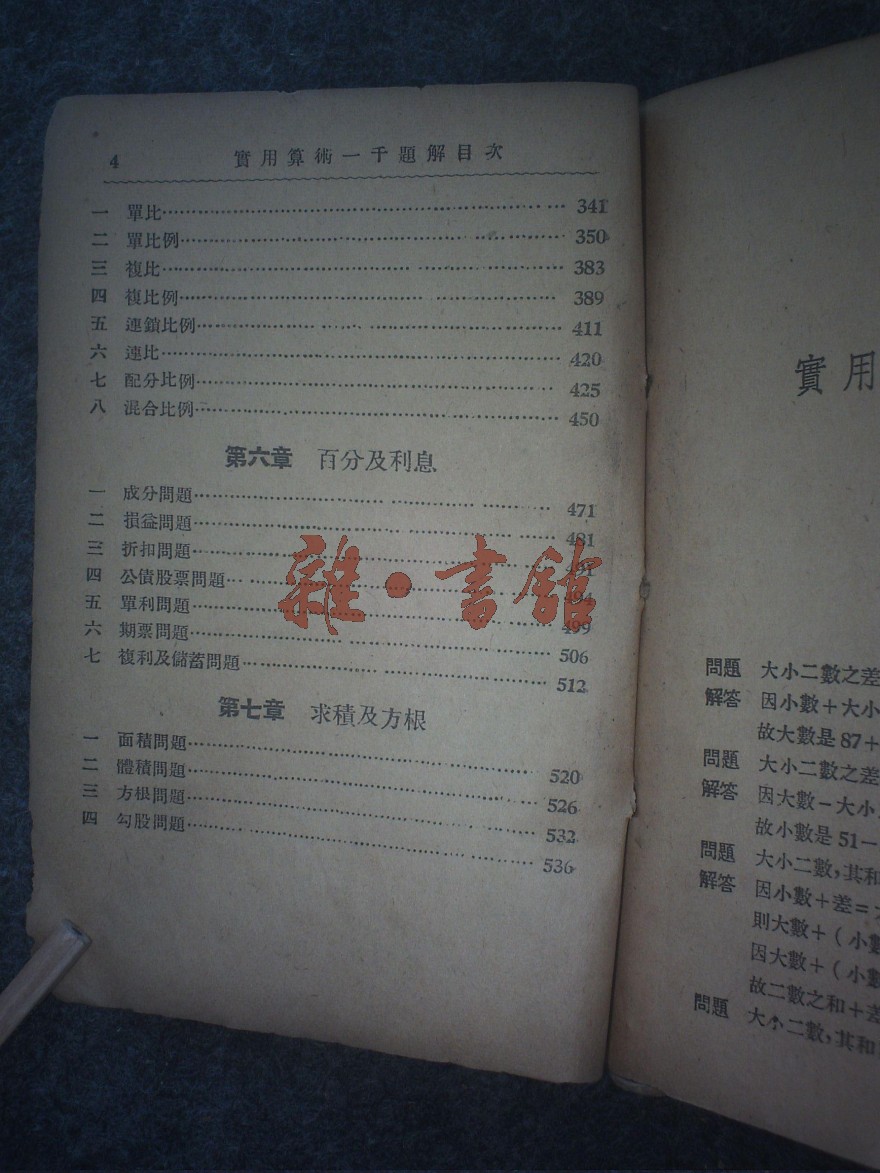 4 實用算術一千題解目次
一 單比 341
二 單比例 350
三 複比 383
四 複比例 389
五 連鎖比例 411
六 連比 420
七 配分比例 425
八 混合比例 450
第六章 百分及利息
一 成分問題 471
二 損益問題 481
三 折扣問題 491
四 公債股票問題 494
五 單利問題 499
六 期票問題 506
七 複利及儲蓄問題 512
第七章 求積及方根
一 面積問題 520
二 體積問題 526
三 方根問題 532
四 勾股問題 536
雜·書館
實用
問題 大小二數之差
解答 因小數+大小
故大數是87+
問題 大小二數之差
解答 因大數-大小
故小數是51-
問題 大小二數,其和
解答 因小數+差=
則大數+(小數
因大數+(小數
故二數之和+差
問題 大小二數,其和